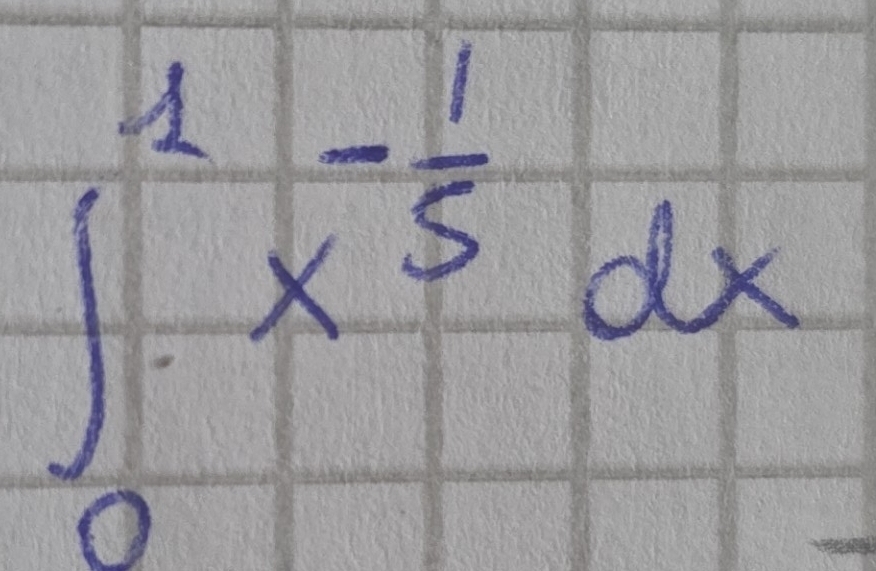 ∫₀¹ x^{-1/5} dx